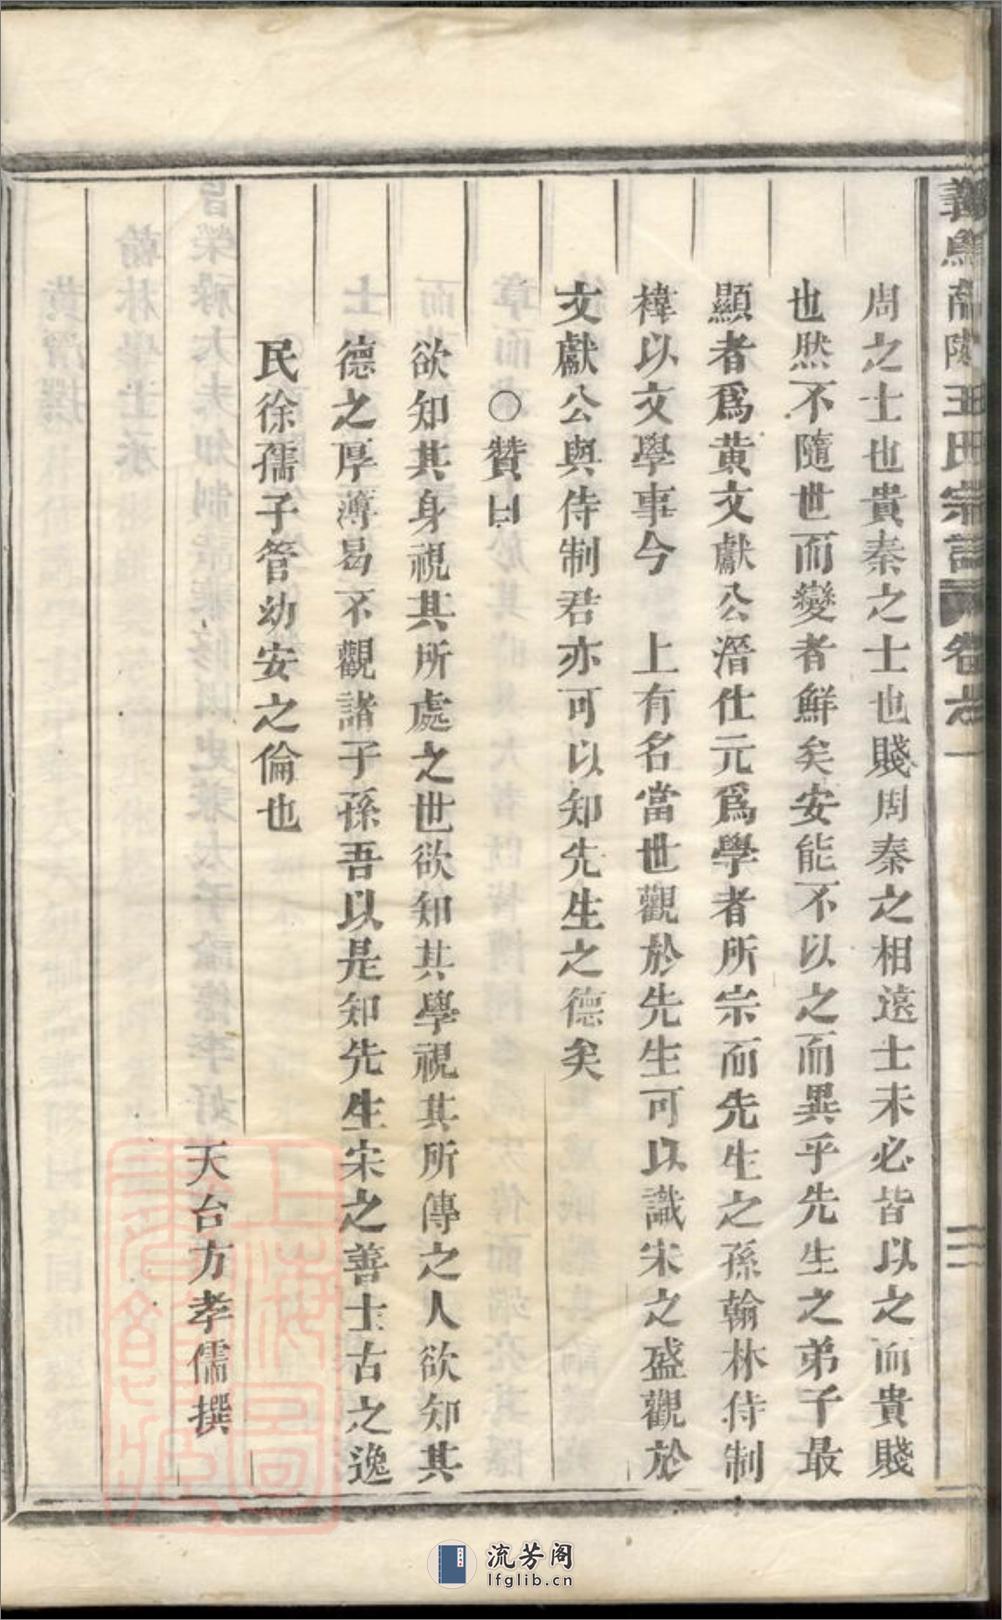 義烏南陵王氏宗譜 卷之一
周之士也貴秦之士也賤周秦之相遠士未必皆以之而貴賤
也然不隨世而變者鮮矣安能不以之而異乎先生之弟子最
顯者爲黃文獻公溍仕元爲學者所宗而先生之孫翰林待制
褘以文學事今 上有名當世觀於先生可以識宋之盛觀於
文獻公與侍制君亦可以知先生之德矣
○贊曰
欲知其身視其所處之世欲知其學視其所傳之人欲知其
德之厚薄曷不觀諸子孫吾以是知先生宋之善士古之逸
民徐孺子管幼安之倫也
天台方孝儒撰
流芳阁
lfglib.cn